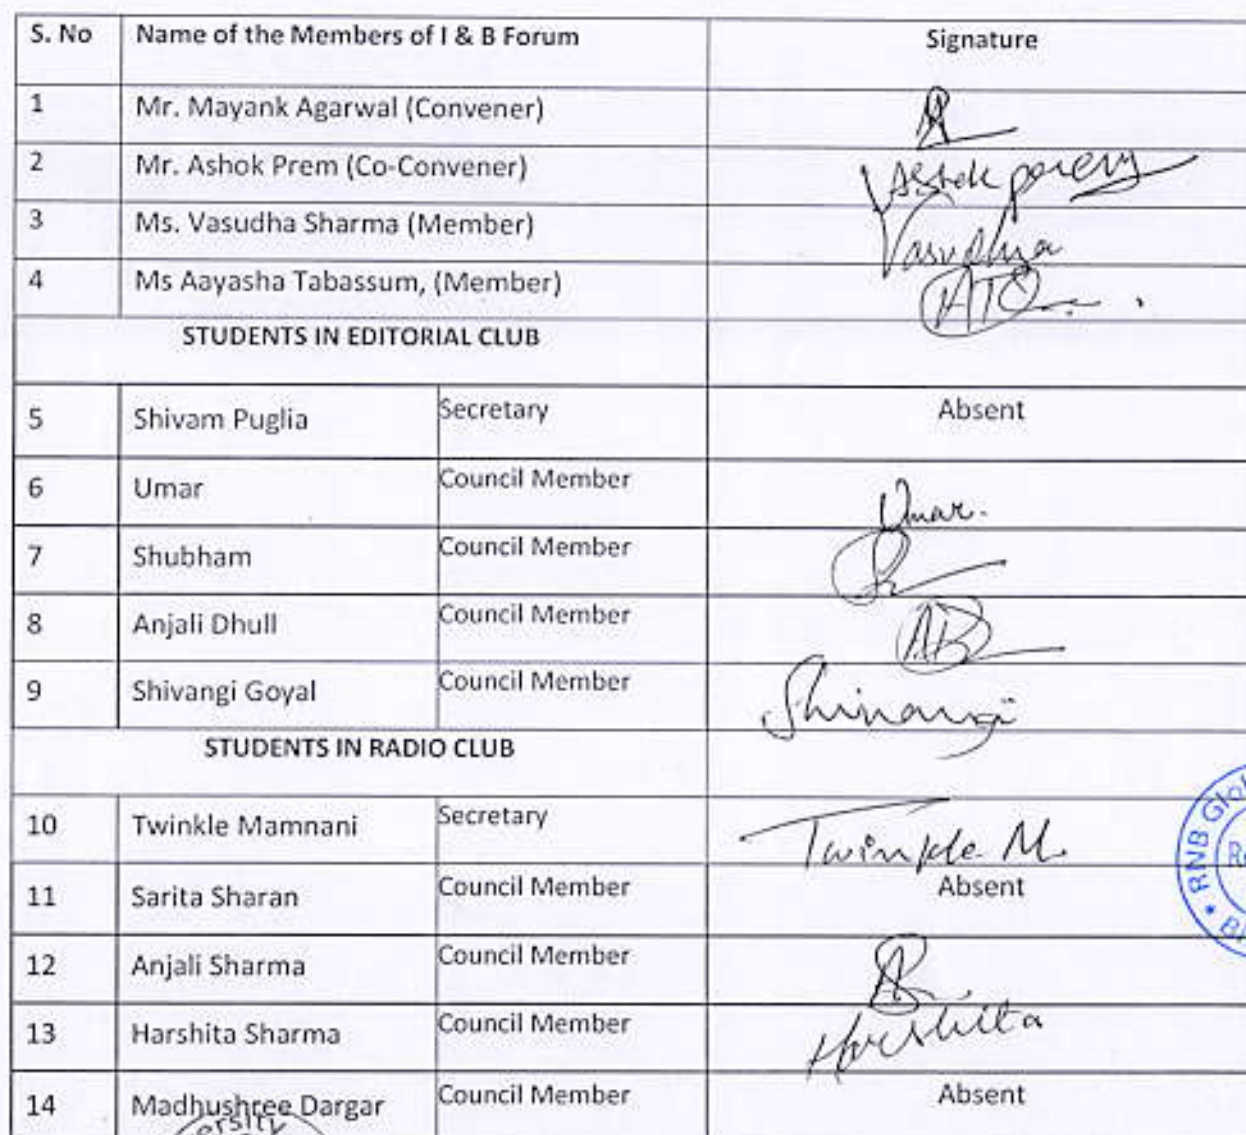 S. No Name of the Members of I & B Forum Signature
1 Mr. Mayank Agarwal (Convener)
2 Mr. Ashok Prem (Co-Convener) Ashok prem
3 Ms. Vasudha Sharma (Member) Vasudha
4 Ms Aayasha Tabassum, (Member)
STUDENTS IN EDITORIAL CLUB
5 Shivam Puglia Secretary Absent
6 Umar Council Member Umar.
7 Shubham Council Member
8 Anjali Dhull Council Member
9 Shivangi Goyal Council Member Shivangi
STUDENTS IN RADIO CLUB
10 Twinkle Mamnani Secretary Twinkle M.
11 Sarita Sharan Council Member Absent
12 Anjali Sharma Council Member
13 Harshita Sharma Council Member Harshita
14 Madhushree Dargar Council Member Absent
RNB Glob
ersity